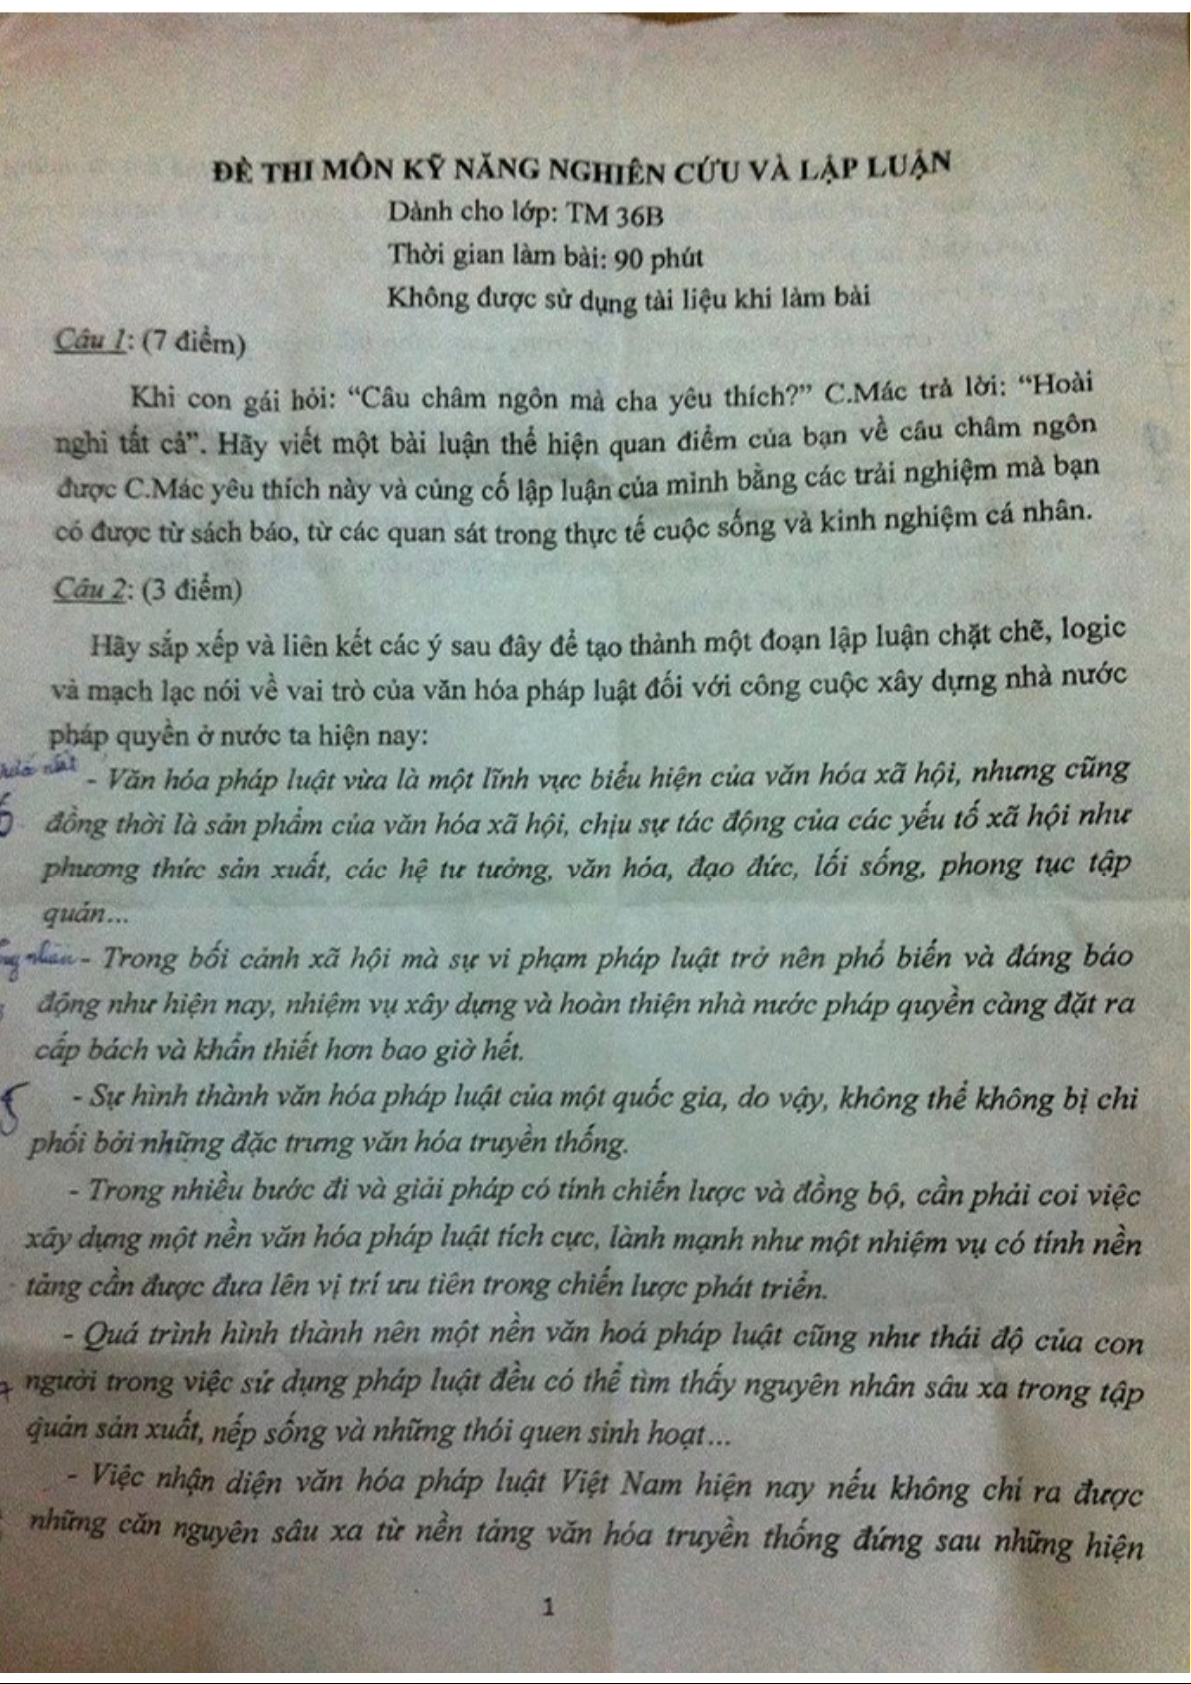 ĐỀ THI MÔN KỸ NĂNG NGHIÊN CỨU VÀ LẬP LUẬN
Dành cho lớp: TM 36B
Thời gian làm bài: 90 phút
Không được sử dụng tài liệu khi làm bài
Câu 1: (7 điểm)
Khi con gái hỏi: “Câu châm ngôn mà cha yêu thích?” C.Mác trả lời: “Hoài
nghi tất cả”. Hãy viết một bài luận thể hiện quan điểm của bạn về câu châm ngôn
được C.Mác yêu thích này và củng cố lập luận của mình bằng các trải nghiệm mà bạn
có được từ sách báo, từ các quan sát trong thực tế cuộc sống và kinh nghiệm cá nhân.
Câu 2: (3 điểm)
Hãy sắp xếp và liên kết các ý sau đây để tạo thành một đoạn lập luận chặt chẽ, logic
và mạch lạc nói về vai trò của văn hóa pháp luật đối với công cuộc xây dựng nhà nước
pháp quyền ở nước ta hiện nay:
- Văn hóa pháp luật vừa là một lĩnh vực biểu hiện của văn hóa xã hội, nhưng cũng
đồng thời là sản phẩm của văn hóa xã hội, chịu sự tác động của các yếu tố xã hội như
phương thức sản xuất, các hệ tư tưởng, văn hóa, đạo đức, lối sống, phong tục tập
quán...
- Trong bối cảnh xã hội mà sự vi phạm pháp luật trở nên phổ biến và đáng báo
động như hiện nay, nhiệm vụ xây dựng và hoàn thiện nhà nước pháp quyền càng đặt ra
cấp bách và khẩn thiết hơn bao giờ hết.
- Sự hình thành văn hóa pháp luật của một quốc gia, do vậy, không thể không bị chi
phối bởi những đặc trưng văn hóa truyền thống.
- Trong nhiều bước đi và giải pháp có tính chiến lược và đồng bộ, cần phải coi việc
xây dựng một nền văn hóa pháp luật tích cực, lành mạnh như một nhiệm vụ có tính nền
tảng cần được đưa lên vị trí ưu tiên trong chiến lược phát triển.
- Quá trình hình thành nên một nền văn hoá pháp luật cũng như thái độ của con
người trong việc sử dụng pháp luật đều có thể tìm thấy nguyên nhân sâu xa trong tập
quán sản xuất, nếp sống và những thói quen sinh hoạt...
- Việc nhận diện văn hóa pháp luật Việt Nam hiện nay nếu không chỉ ra được
những căn nguyên sâu xa từ nền tảng văn hóa truyền thống đứng sau những hiện
1